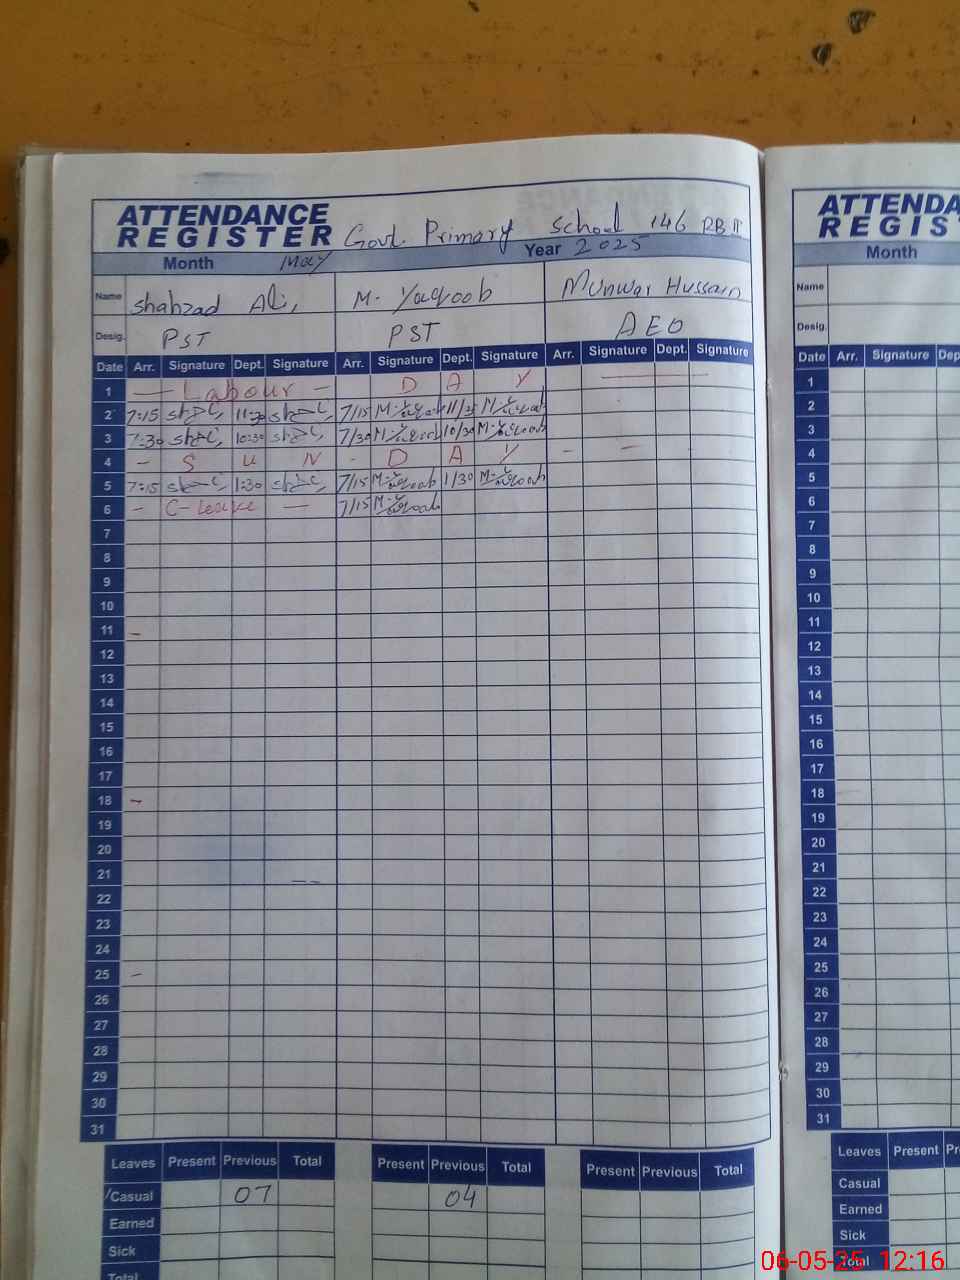 ATTENDANCE REGISTER Govt. Primary School 146 RB II
Month May Year 2025
Name Shahzad Ali, M. Yaqoob Munwar Hussain
Desig. PST PST AEO
Date Arr. Signature Dept. Signature Arr. Signature Dept. Signature Arr. Signature Dept. Signature
1 — Labour — D A Y —
2 7:15 11:30 7/15 M. Yaqoob 11/30 M. Yaqoob
3 7:30 10:30 7/30 M. Yaqoob 10/30 M. Yaqoob
4 - S U N - D A Y - -
5 7:15 1:30 7/15 M. Yaqoob 1/30 M. Yaqoob
6 - C-Leave — 7/15 M. Yaqoob
7
8
9
10
11 -
12
13
14
15
16
17
18 -
19
20
21
22
23
24
25 -
26
27
28
29
30
31
Leaves Present Previous Total Present Previous Total Present Previous Total
Casual 07 04
Earned
Sick
Total
ATTENDA
REGIST
Month
Name
Desig.
Date Arr. Signature Dep
1
2
3
4
5
6
7
8
9
10
11
12
13
14
15
16
17
18
19
20
21
22
23
24
25
26
27
28
29
30
31
Leaves Present Pr
Casual
Earned
Sick
Total
06-05-25 12:16